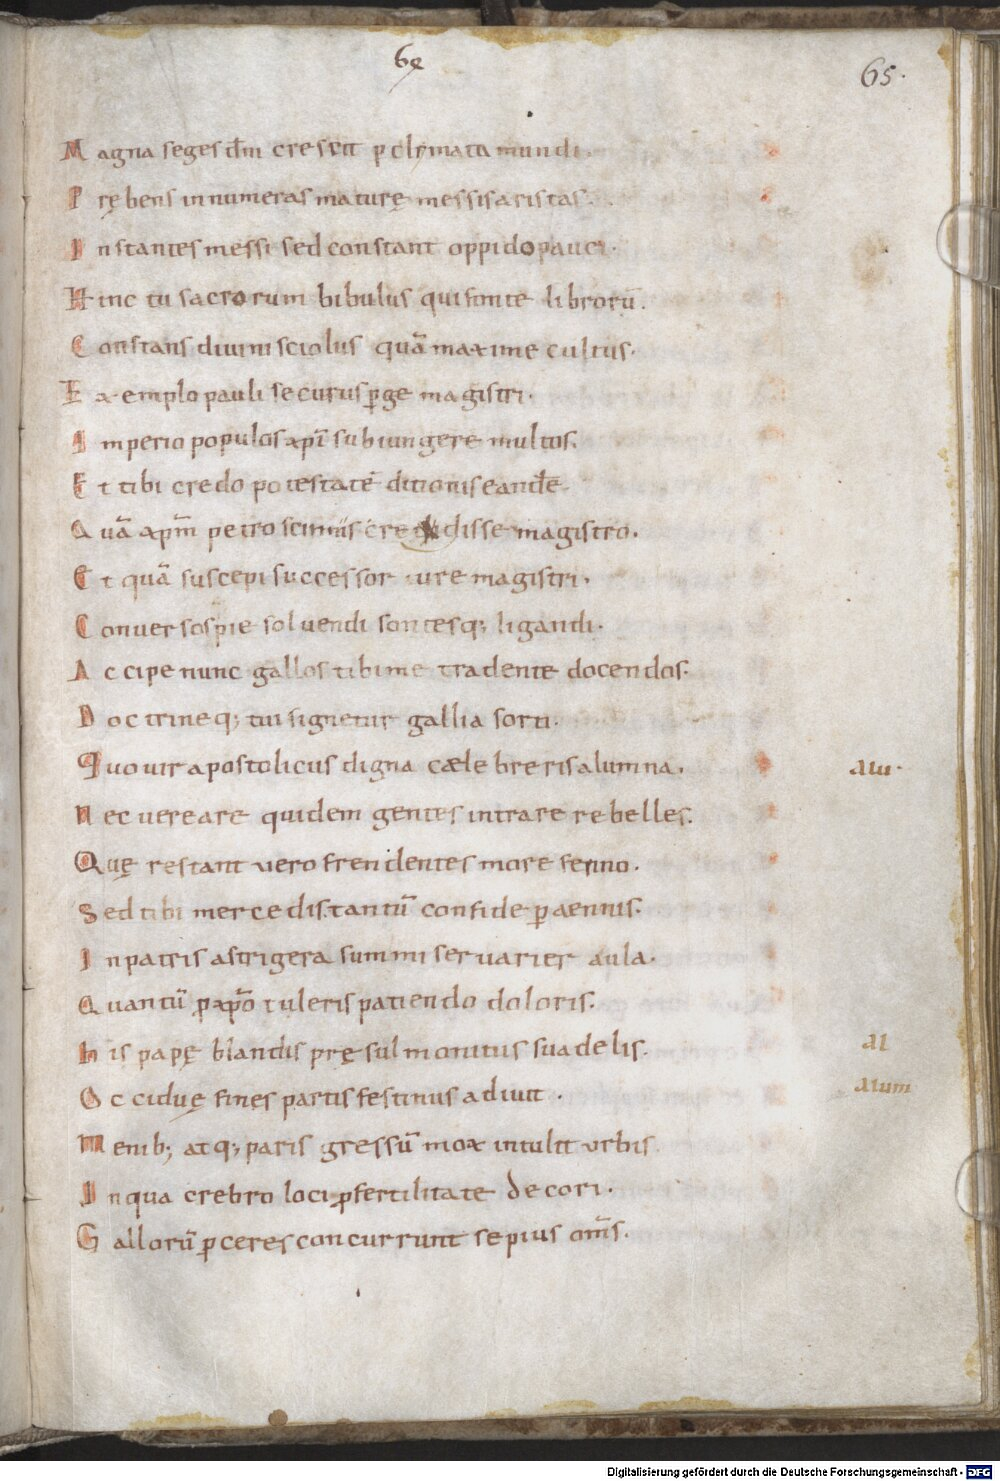 6ę
65.
Magna seges dm̄ crescit p clymata mundi.
Prębens innumeras maturę messis aristas.
Instantes messi sed constant oppido pauci.
Hinc tu sacrorum bibulus qui fonte librorū.
Constans diuini sciolus quā maxime cultus.
Exemplo pauli securus p̱ge magistri.
Imperio populos xp̄i subiungere multos.
Et tibi credo potestatē ditionis eandē
Quā xp̄m petro scimus credidisse magistro.
Et quā suscepi successor iure magistri.
Conuersos pie soluendi sontesq; ligandi.
Accipe nunc gallos tibi me tradente docendos.
Doctrineq; tui signetur gallia sorti.
Quo uir apostolicus digna cælebreris alumna.
Alu.
Nec uereare quidem gentes intrare rebelles.
Quę restant vero frendentes more ferino.
Sed tibi mercedis tantū confide p̱aennis.
In patris astrigera summi seruarier aula.
Quantū p̱ xp̄o tuleris patiendo doloris.
his papę blandis pręsul monitus suadelis.
Al
Occiduę fines partis festinus adiuit.
Alum
Menib; atq; paris gressū mox intulit vrbis.
In qua crebro loci p̱ fertilitate decori.
Gallorū p̱ceres concurrunt sepius om̄s.
Digitalisierung gefördert durch die Deutsche Forschungsgemeinschaft - DFG